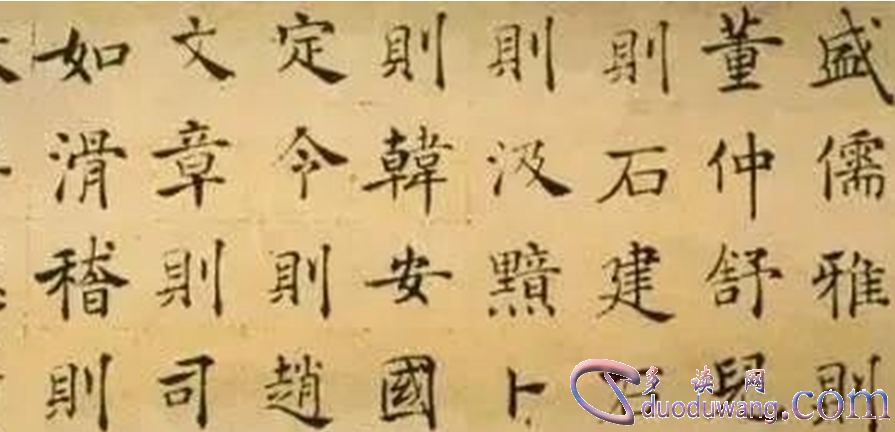 盛儒雅則
董仲舒兒
則石建
則汲黯卜
則韓安國
定令則趙
文章則司
如滑稽則
多读网
duoduwang.com